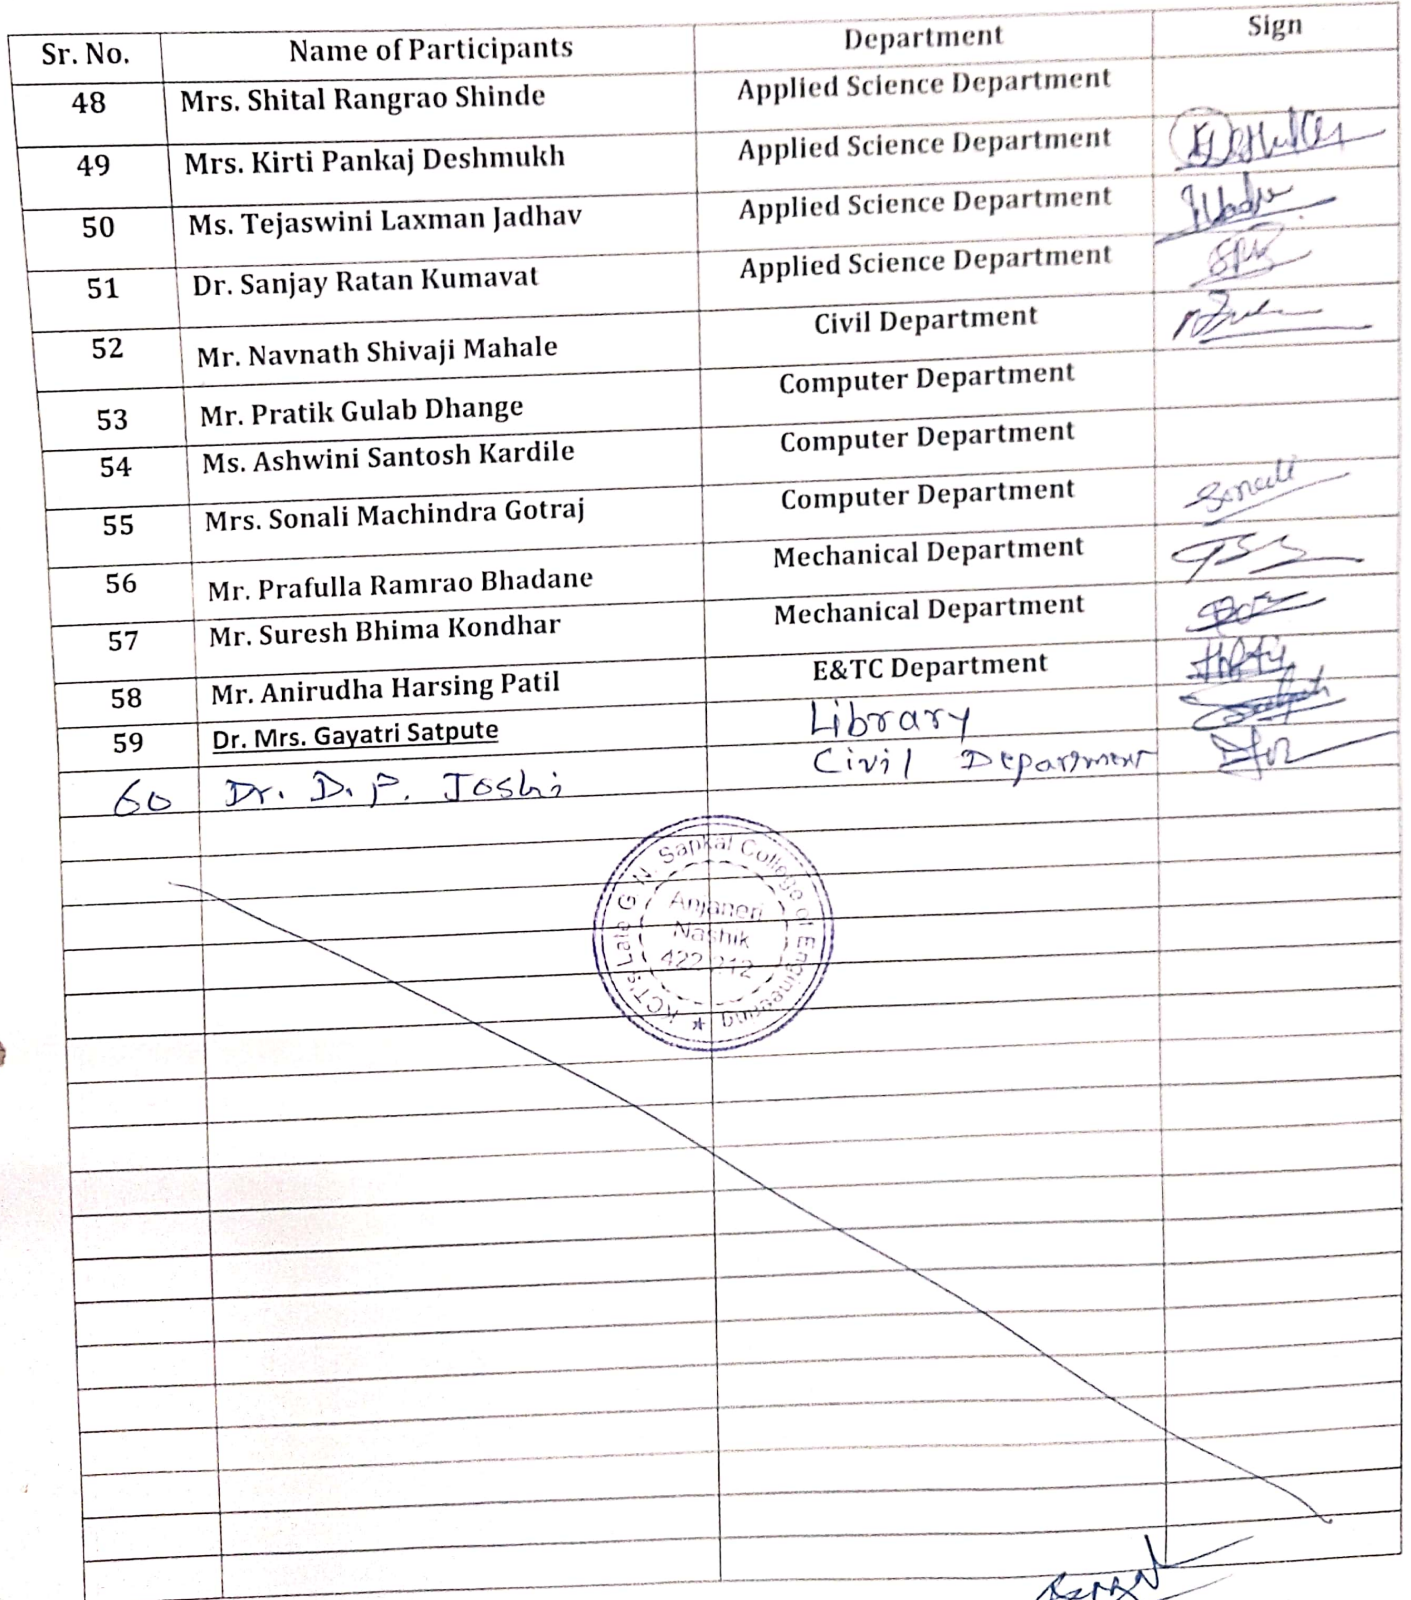 Sr. No. Name of Participants Department Sign
48 Mrs. Shital Rangrao Shinde Applied Science Department
49 Mrs. Kirti Pankaj Deshmukh Applied Science Department
50 Ms. Tejaswini Laxman Jadhav Applied Science Department
51 Dr. Sanjay Ratan Kumavat Applied Science Department
52 Mr. Navnath Shivaji Mahale Civil Department
53 Mr. Pratik Gulab Dhange Computer Department
54 Ms. Ashwini Santosh Kardile Computer Department
55 Mrs. Sonali Machindra Gotraj Computer Department Sonali
56 Mr. Prafulla Ramrao Bhadane Mechanical Department
57 Mr. Suresh Bhima Kondhar Mechanical Department
58 Mr. Anirudha Harsing Patil E&TC Department
59 Dr. Mrs. Gayatri Satpute Library
60 Dr. D. P. Joshi Civil Department
KCT's Late G. N. Sapkal College of Engineering
Anjaneri
Nashik
422 212